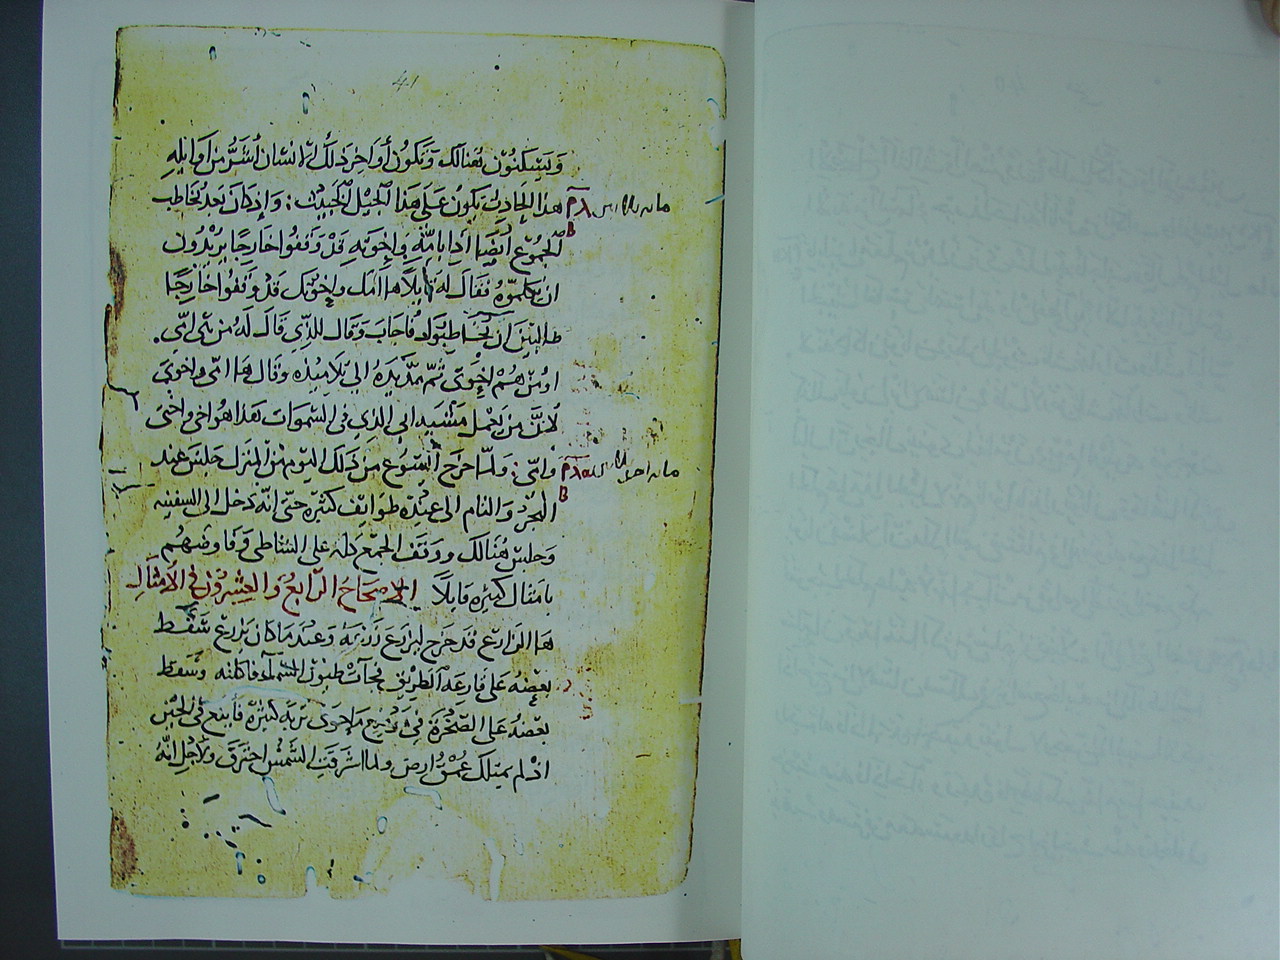 41
وَيَسْكنُوْن هُنالك وَتكون أواخر ذلك الانسان أشَرُّ من أوَايلهِ
هذا الحَادِث يكون عَلى هَذا الجيل الخبيث: وَاِذ كانَ بَعدُ يُخاطِب
الجُموْعَ أيضًا اُذا بامّهِ واِخوَته قَدْ وَقفوا خارجًا يريْدُون
ان يكلموّهُ فقالَ لهُ قايلاً ها امك واخوتك قد وقفوا خارجًا
طالبين ان يخاطبوك فاجابَ وَقال للذِي قالَ لهُ من هي امّي.
اومن هُمْ اِخوَتي ثمّ مدّ يَدَهُ الى تلاميْذه وَقال ها امى واخوتي
لانَّ من يَعْمل مشيه ابى الذي في السّموَات هذا هُو اخي واختي
وامّى: ولمّا خرج اَيسُوْع من ذلك اليَوْم من المنزل جلسَ عِند
البحرْ وَالتام الى عِندِه طوَايف كثيرَه حتى انّه دَخل الى السفينه
وَجلسَ هُنالك ووَقفَ الجمع كله على الشاطى وَفاوضهُم
بامثال كثيرَه قايلاً الاِصحَاحَ الرّابعُ وَالعِشرُوْن في الأمثالِ
هَا الزارع قد خرج ليزرَع زرعه وَعند مَا كان يزرَع سَقط
بعضهُ عَلى قارعَه الطريق فجآت طيور السّمآء فاكلته وسَقط
بعضهُ عَلى الصّخرَة في موْضِع مَا حوَى تربَه كثيرَه فأينع في الحين
اذ لم يمتلك عمْق ارض ولما اشرَقتِ الشمْسُ احترَق وَلاجْل انّهُ